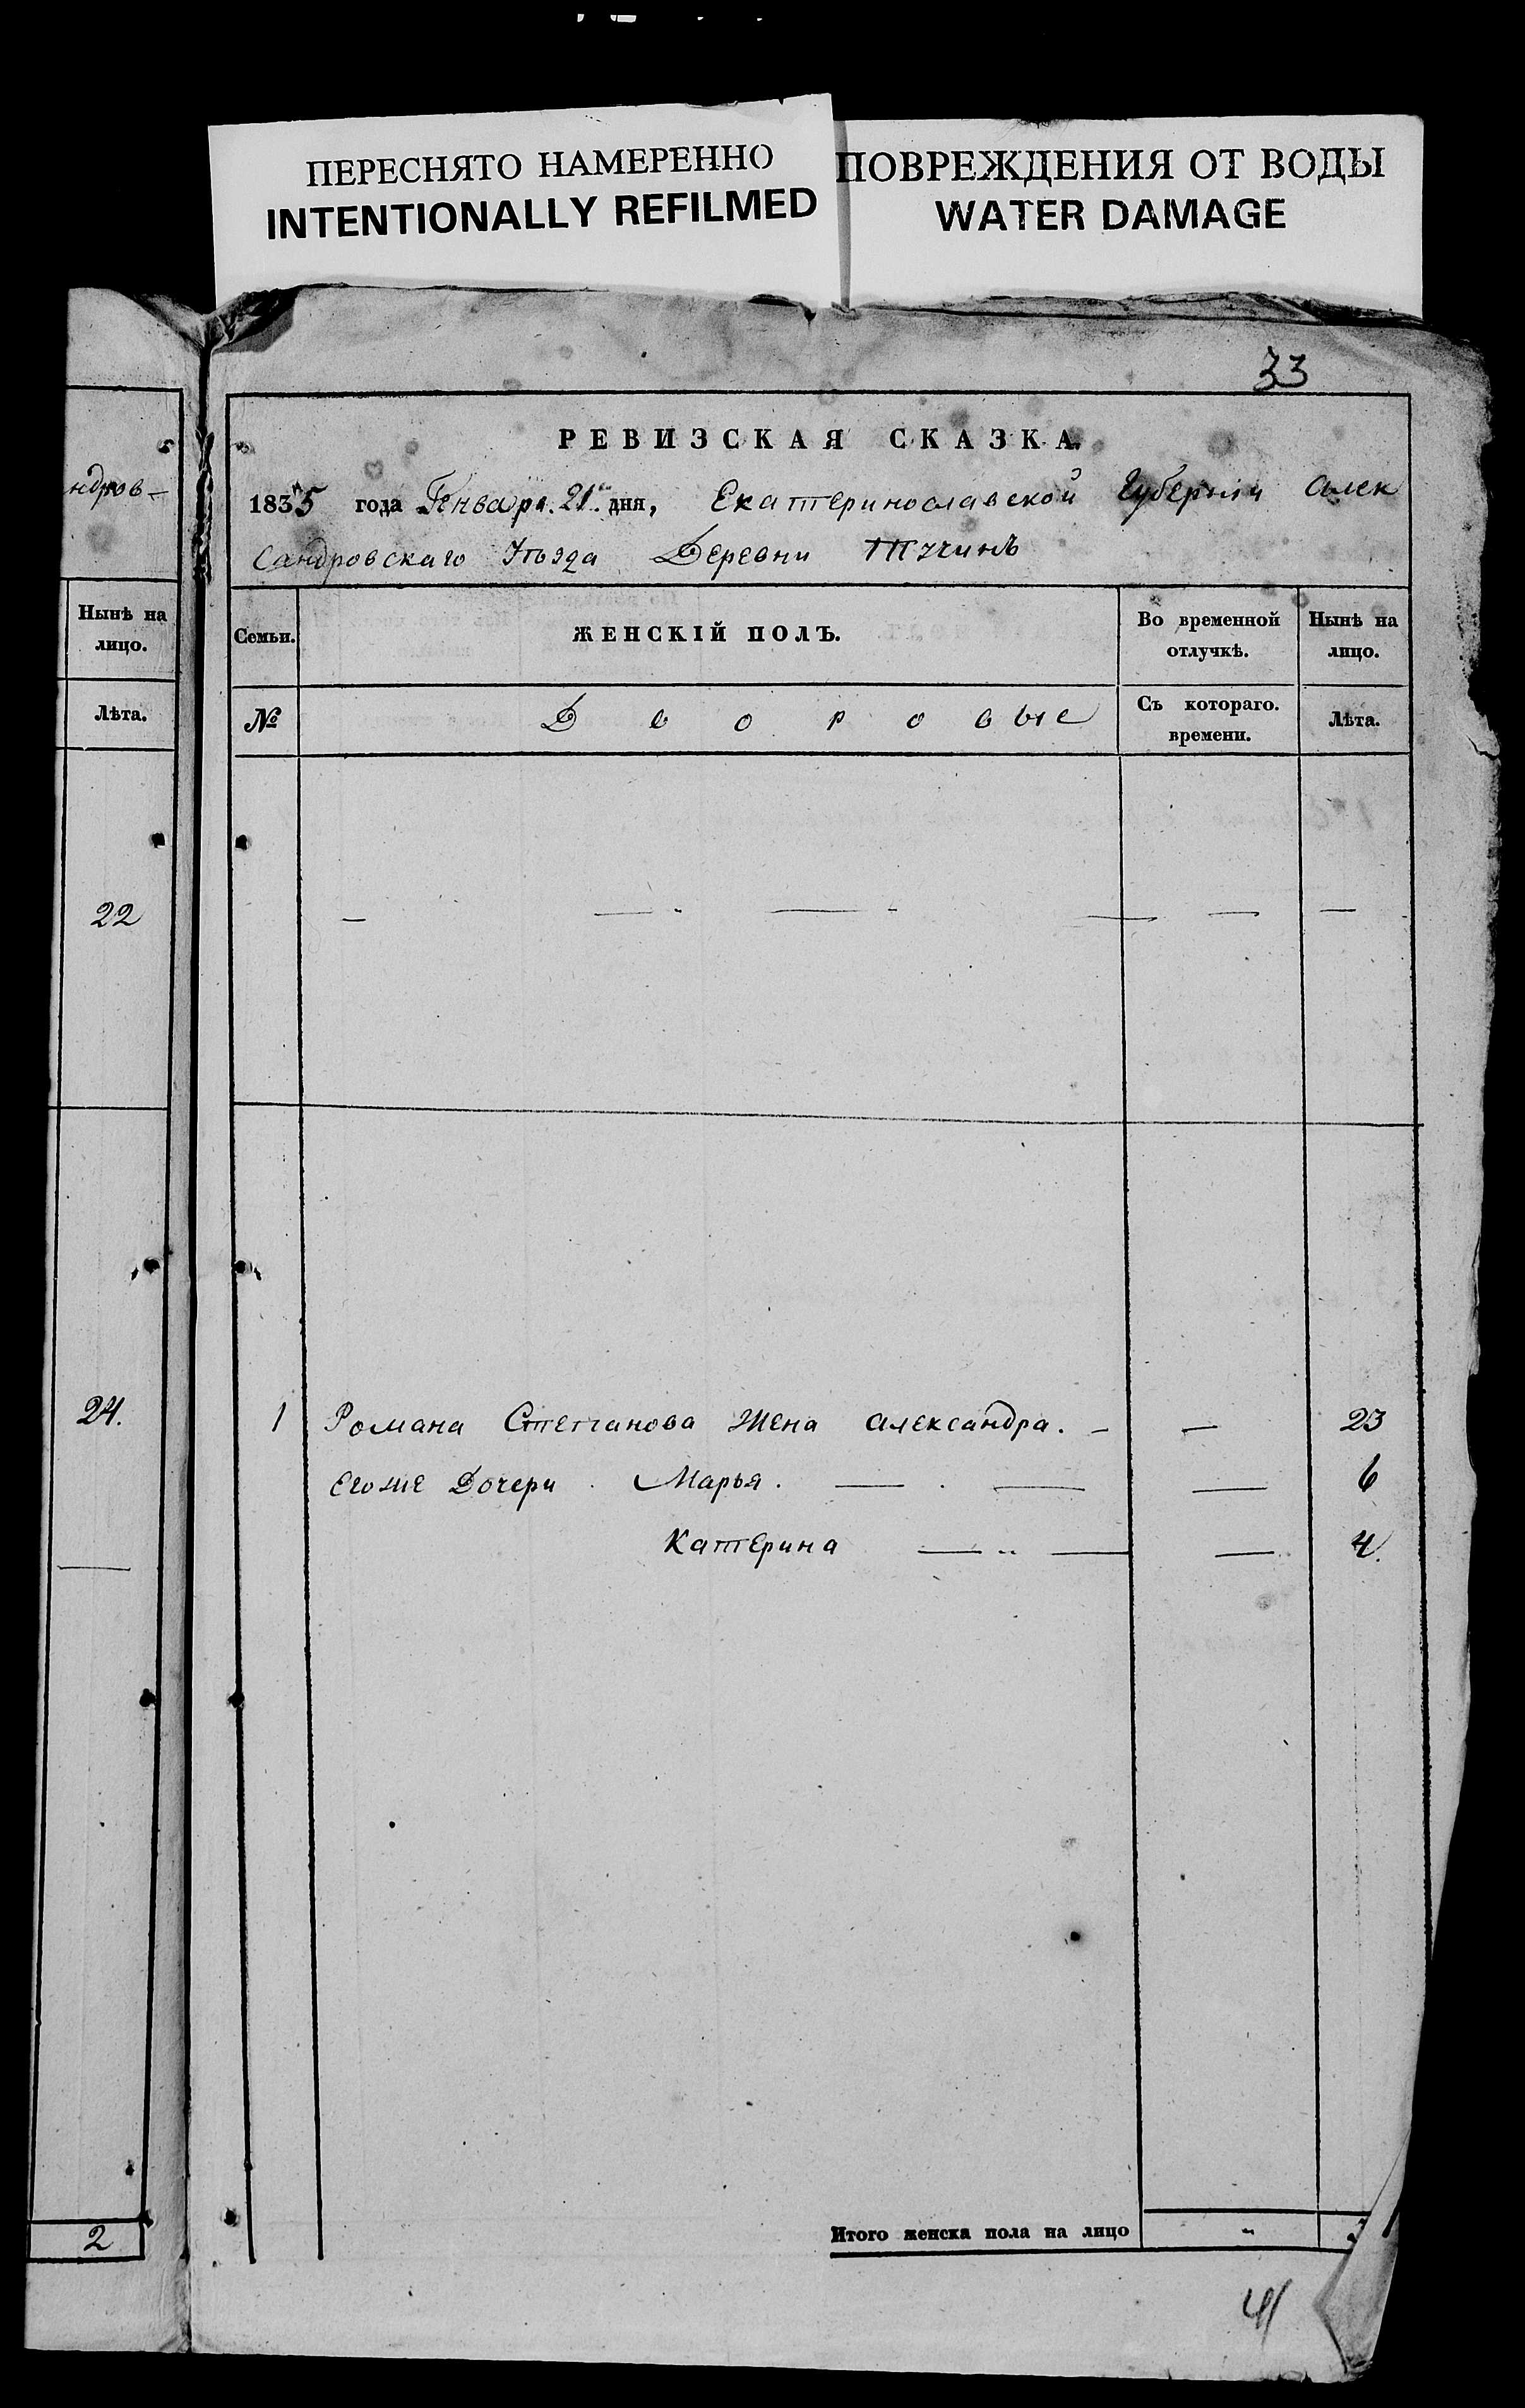 ПЕРЕСНЯТО НАМЕРЕННО
INTENTIONALLY REFILMED
ПОВРЕЖДЕНИЯ ОТ ВОДЫ
WATER DAMAGE
ндров-
Нынѣ на
лицо.
Лѣта.
22
24.
2
33
РЕВИЗСКАЯ СКАЗКА.
1835 года Генваря 21го дня, Екатеринославской Губерніи Алек
сандровскаго Уѣзда Деревни
Семьи.
ЖЕНСКІЙ ПОЛЪ.
Во временной
отлучкѣ.
Нынѣ на
лицо.
№
Дворовые
Съ котораго.
времени.
Лѣта.
1 Романа Степанова Жена Александра. - — 23
Егоже Дочери Марья. — — — 6
Катерина — — — 4.
Итого женска пола на лицо
41